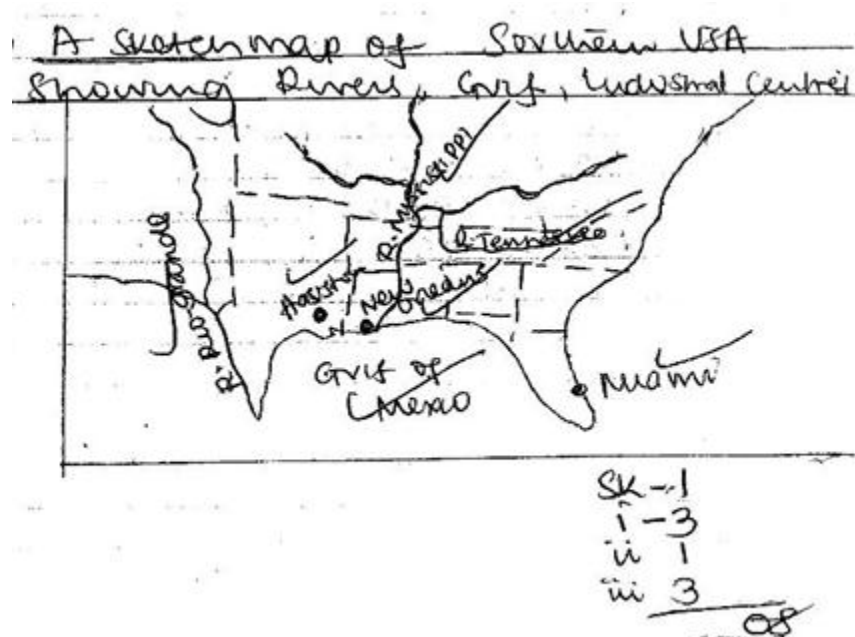 A sketch map of Southern USA
Showing Rivers, Gulf, Industrial Centres
R. Mississippi
R. Tennessee
R. Rio-Grande
Houston
New Orleans
Gulf of
Mexico
Miami
SK-1
i-3
ii 1
iii 3
08